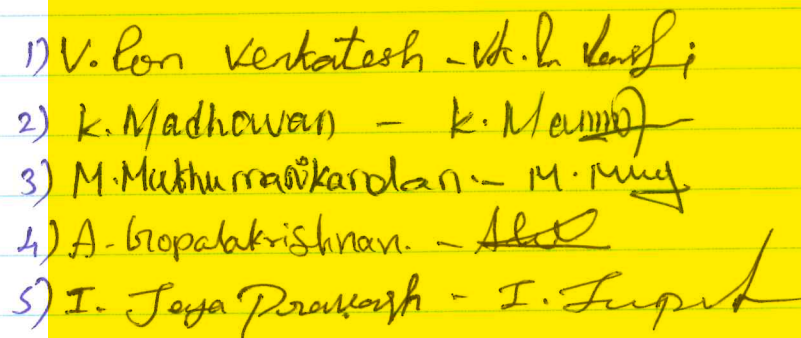 1) V. Pon Venkatesh -
2) K. Madhavan - K.
3) M. Muthumanikandan - M.
4) A. Gopalakrishnan. -
5) I. Jeya Prakash - I.